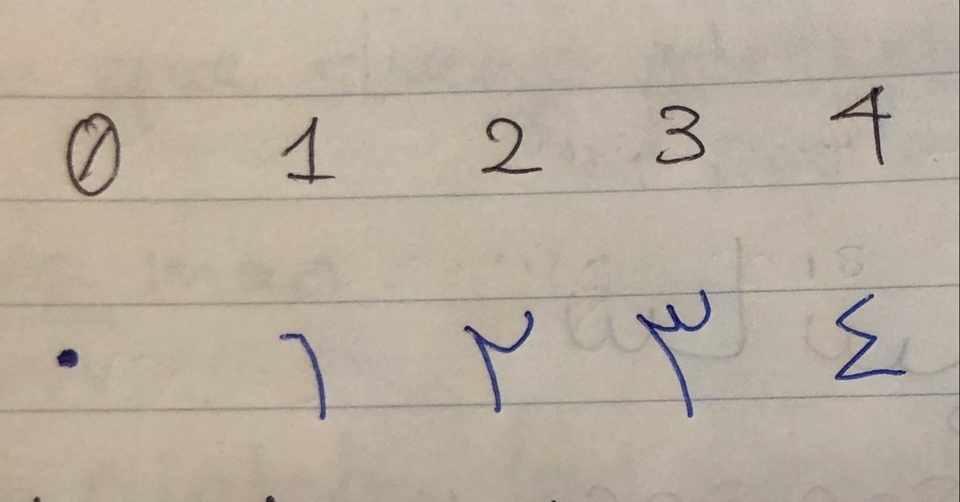 0 1 2 3 4
٠ ١ ٢ ٣ ٤